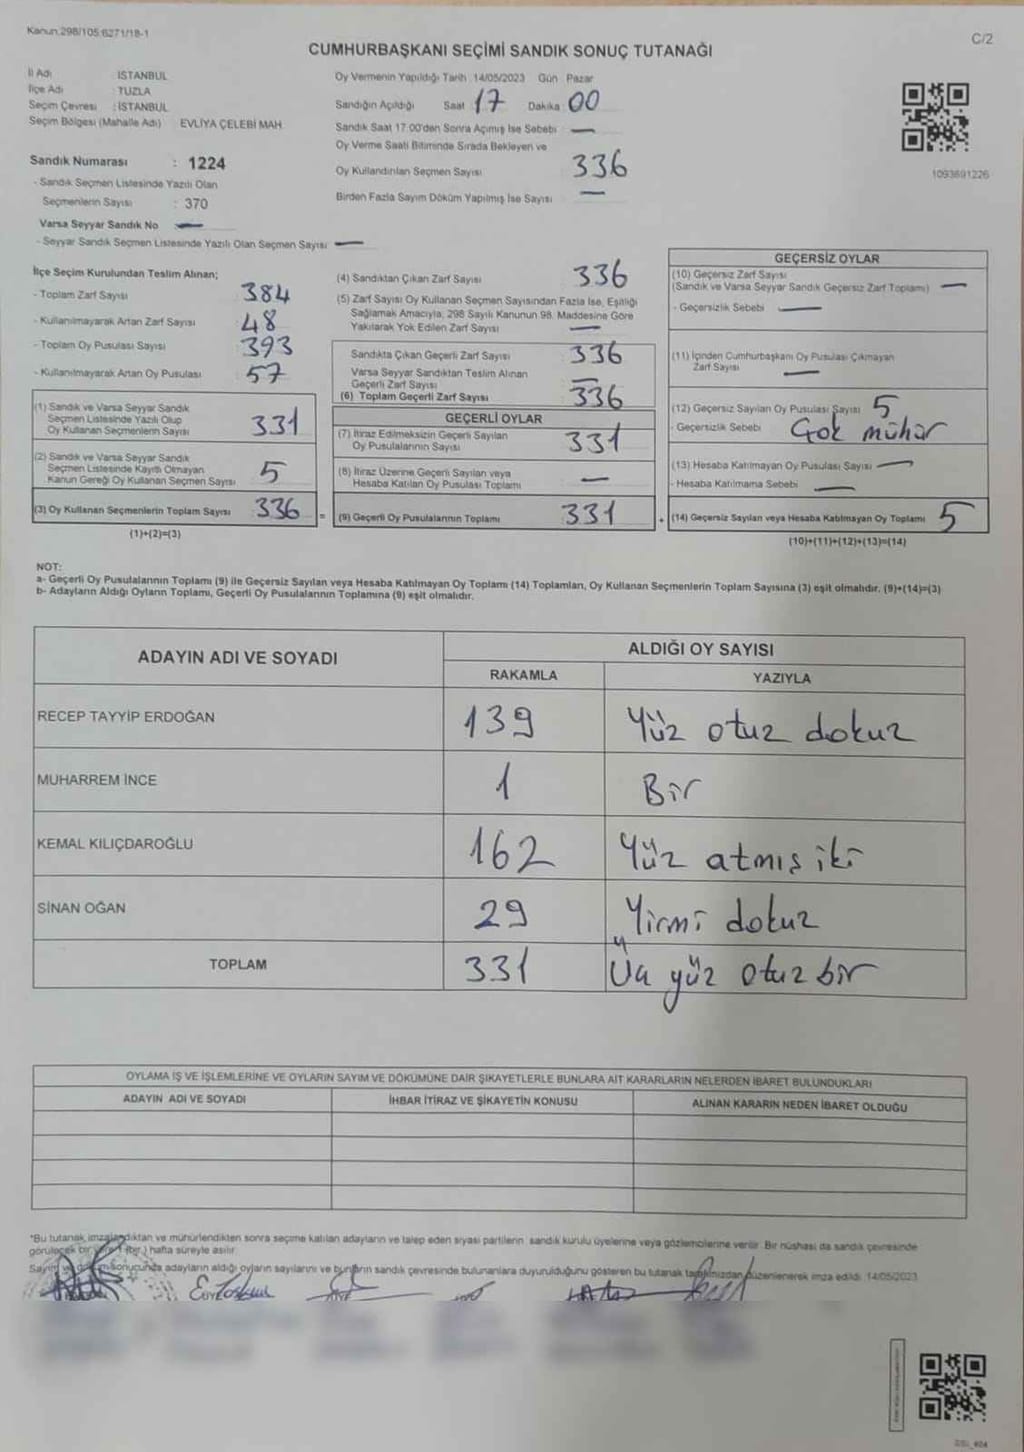 Kanun:298/105:6271/18-1
C/2
CUMHURBAŞKANI SEÇİMİ SANDIK SONUÇ TUTANAĞI
İl Adı : İSTANBUL
İlçe Adı : TUZLA
Seçim Çevresi : İSTANBUL
Seçim Bölgesi (Mahalle Adı) EVLİYA ÇELEBİ MAH.
Sandık Numarası : 1224
- Sandık Seçmen Listesinde Yazılı Olan
Seçmenlerin Sayısı : 370
Varsa Seyyar Sandık No —
- Seyyar Sandık Seçmen Listesinde Yazılı Olan Seçmen Sayısı —
Oy Vermenin Yapıldığı Tarih :14/05/2023 Gün : Pazar
Sandığın Açıldığı Saat 17 Dakika : 00
Sandık Saat 17:00'den Sonra Açımış İse Sebebi : —
Oy Verme Saati Bitiminde Sırada Bekleyen ve
Oy Kullandırılan Seçmen Sayısı 336
Birden Fazla Sayım Döküm Yapılmış İse Sayısı —
1093691226
İlçe Seçim Kurulundan Teslim Alınan;
- Toplam Zarf Sayısı 384
- Kullanılmayarak Artan Zarf Sayısı 48
- Toplam Oy Pusulası Sayısı 393
- Kullanılmayarak Artan Oy Pusulası 57
(1) Sandık ve Varsa Seyyar Sandık
Seçmen Listesinde Yazılı Olup
Oy Kullanan Seçmenlerin Sayısı 331
(2) Sandık ve Varsa Seyyar Sandık
Seçmen Listesinde Kayıtlı Olmayan
Kanun Gereği Oy Kullanan Seçmen Sayısı 5
(3) Oy Kullanan Seçmenlerin Toplam Sayısı 336 =
(1)+(2)=(3)
(4) Sandıktan Çıkan Zarf Sayısı 336
(5) Zarf Sayısı Oy Kullanan Seçmen Sayısından Fazla İse, Eşitliği
Sağlamak Amacıyla, 298 Sayılı Kanunun 98. Maddesine Göre
Yakılarak Yok Edilen Zarf Sayısı —
Sandıkta Çıkan Geçerli Zarf Sayısı 336
Varsa Seyyar Sandıktan Teslim Alınan
Geçerli Zarf Sayısı —
(6) Toplam Geçerli Zarf Sayısı 336
GEÇERLİ OYLAR
(7) İtiraz Edilmeksizin Geçerli Sayılan
Oy Pusulalarının Sayısı 331
(8) İtiraz Üzerine Geçerli Sayılan veya
Hesaba Katılan Oy Pusulası Toplamı —
(9) Geçerli Oy Pusulalarının Toplamı 331 +
GEÇERSİZ OYLAR
(10) Geçersiz Zarf Sayısı
(Sandık ve Varsa Seyyar Sandık Geçersiz Zarf Toplamı) —
- Geçersizlik Sebebi —
(11) İçinden Cumhurbaşkanı Oy Pusulası Çıkmayan
Zarf Sayısı —
(12) Geçersiz Sayılan Oy Pusulası Sayısı 5
- Geçersizlik Sebebi Çok mühür
(13) Hesaba Katılmayan Oy Pusulası Sayısı —
- Hesaba Katılmama Sebebi —
(14) Geçersiz Sayılan veya Hesaba Katılmayan Oy Toplamı 5
(10)+(11)+(12)+(13)=(14)
NOT:
a- Geçerli Oy Pusulalarının Toplamı (9) ile Geçersiz Sayılan veya Hesaba Katılmayan Oy Toplamı (14) Toplamları, Oy Kullanan Seçmenlerin Toplam Sayısına (3) eşit olmalıdır. (9)+(14)=(3)
b- Adayların Aldığı Oyların Toplamı, Geçerli Oy Pusulalarının Toplamına (9) eşit olmalıdır.
ADAYIN ADI VE SOYADI ALDIĞI OY SAYISI
RAKAMLA YAZIYLA
RECEP TAYYİP ERDOĞAN 139 Yüz otuz dokuz
MUHARREM İNCE 1 Bir
KEMAL KILIÇDAROĞLU 162 Yüz atmış iki
SİNAN OĞAN 29 Yirmi dokuz
TOPLAM 331 Üç yüz otuz bir
OYLAMA İŞ VE İŞLEMLERİNE VE OYLARIN SAYIM VE DÖKÜMÜNE DAİR ŞİKAYETLERLE BUNLARA AİT KARARLARIN NELERDEN İBARET BULUNDUKLARI
ADAYIN ADI VE SOYADI İHBAR İTİRAZ VE ŞİKAYETİN KONUSU ALINAN KARARIN NEDEN İBARET OLDUĞU
*Bu tutanak, imzalandıktan ve mühürlendikten sonra seçime katılan adayların ve talep eden siyasi partilerin sandık kurulu üyelerine veya gözlemcilerine verilir. Bir nüshası da sandık çevresinde
görülecek bir yere 1 (bir.) hafta süreyle asılır.
sonucunda adayların aldığı oyların sayılarını ve bunların sandık çevresinde bulunanlara duyurulduğunu gösteren bu tutanak tarafımızdan düzenlenerek imza edildi. 14/05/2023